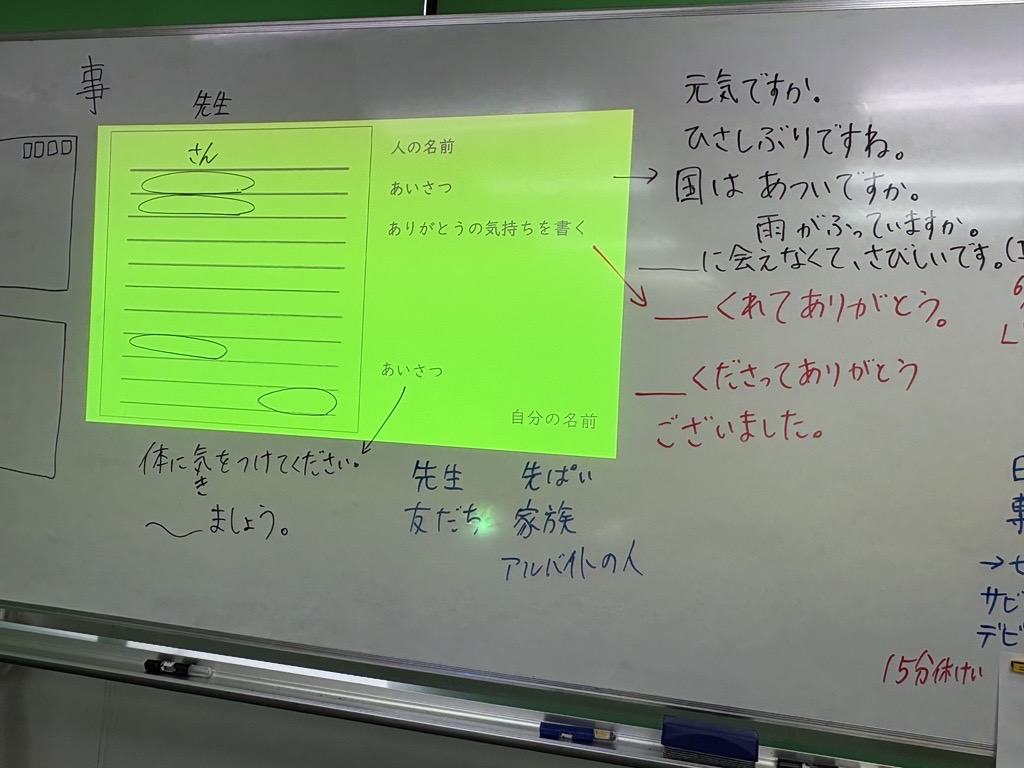 事
先生
さん
人の名前
あいさつ
ありがとうの気持ちを書く
あいさつ
自分の名前
元気ですか。
ひさしぶりですね。
→国は あついですか。
雨がふっていますか。
___に会えなくて、さびしいです。(
___くれてありがとう。
___くださってありがとう
ございました。
体に気をつけてください。
き
〜ましょう。
先生 先ぱい
友だち 家族
アルバイトの人
サビ
デビ
15分休けい